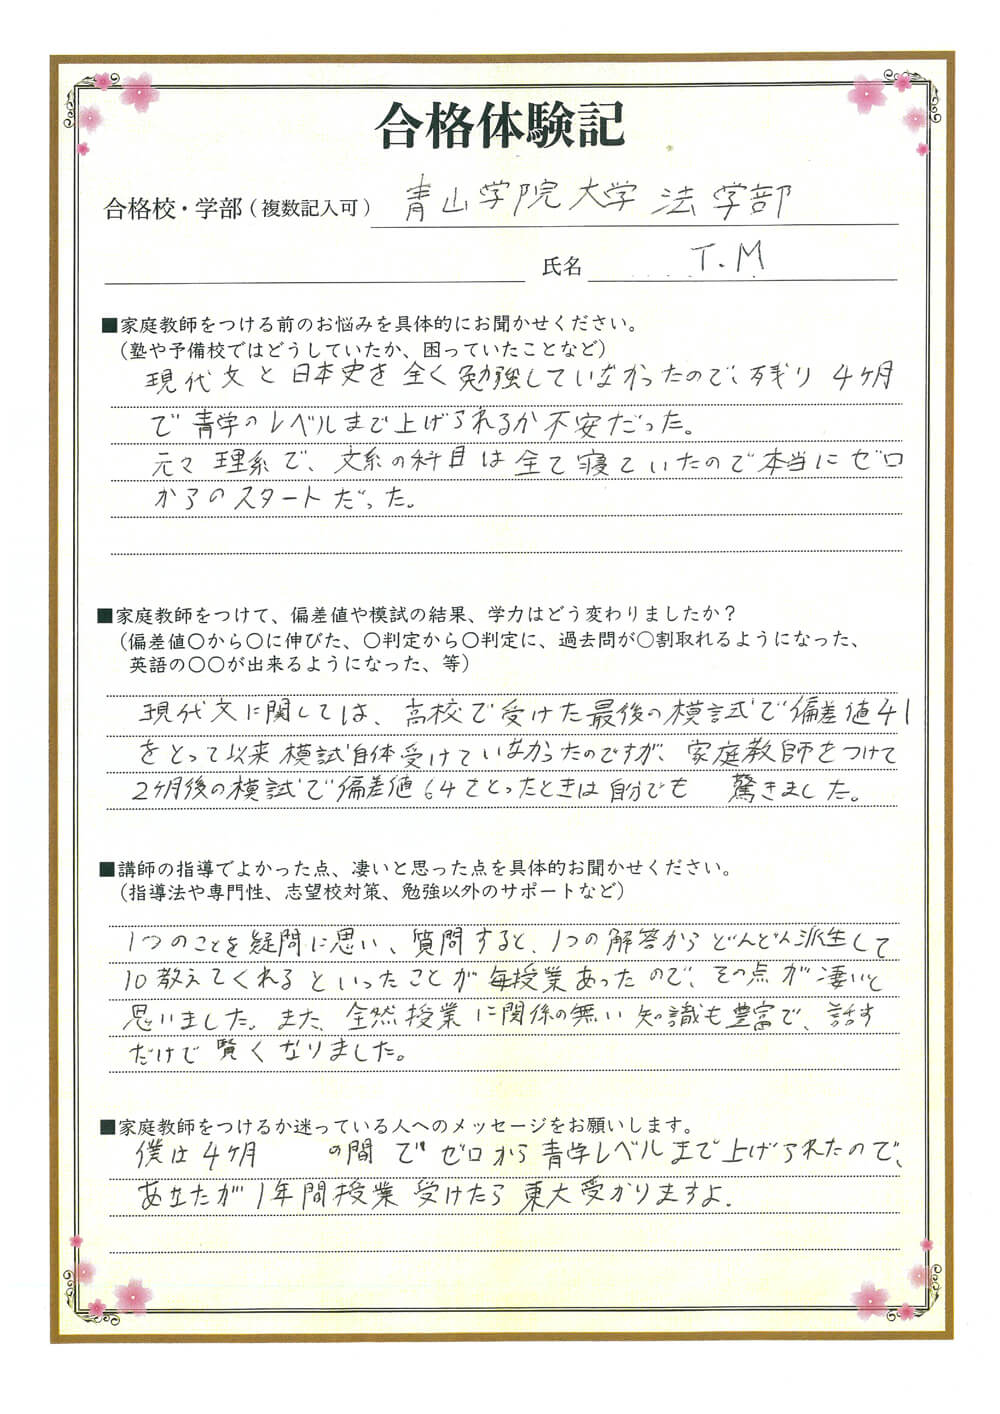 合格体験記
合格校・学部（複数記入可） 青山学院大学 法学部
氏名 T.M
■家庭教師をつける前のお悩みを具体的にお聞かせください。
（塾や予備校ではどうしていたか、困っていたことなど）
現代文と日本史を全く勉強していなかったので、残り4ヶ月
で青学のレベルまで上げられるか不安だった。
元々理系で、文系の科目は全て寝ていたので本当にゼロ
からのスタートだった。
■家庭教師をつけて、偏差値や模試の結果、学力はどう変わりましたか？
（偏差値○から○に伸びた、○判定から○判定に、過去問が○割取れるようになった、
英語の○○が出来るようになった、等）
現代文に関しては、高校で受けた最後の模試で偏差値41
をとって以来模試自体受けていなかったのですが、家庭教師をつけて
2ヶ月後の模試で偏差値64をとったときは自分でも 驚きました。
■講師の指導でよかった点、凄いと思った点を具体的お聞かせください。
（指導法や専門性、志望校対策、勉強以外のサポートなど）
1つのことを疑問に思い、質問すると、1つの解答からどんどん派生して
10教えてくれるといったことが毎授業あったので、その点が凄いと
思いました。また、全然授業に関係の無い知識も豊富で、話す
だけで賢くなりました。
■家庭教師をつけるか迷っている人へのメッセージをお願いします。
僕は4ヶ月 の間でゼロから青学レベルまで上げられたので、
あなたが1年間授業受けたら東大受かりますよ.